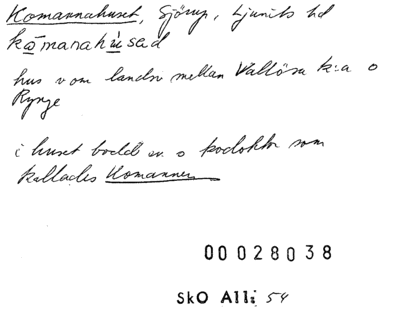 Komannahuset, Sjörup, Ljunits hd
kåmanahúsad
hus v om landsv mellan Vallösa k:a o
Rynge
i huset bodde en s kodoktor som
kallades Komannen
00028038
SkO All: 54